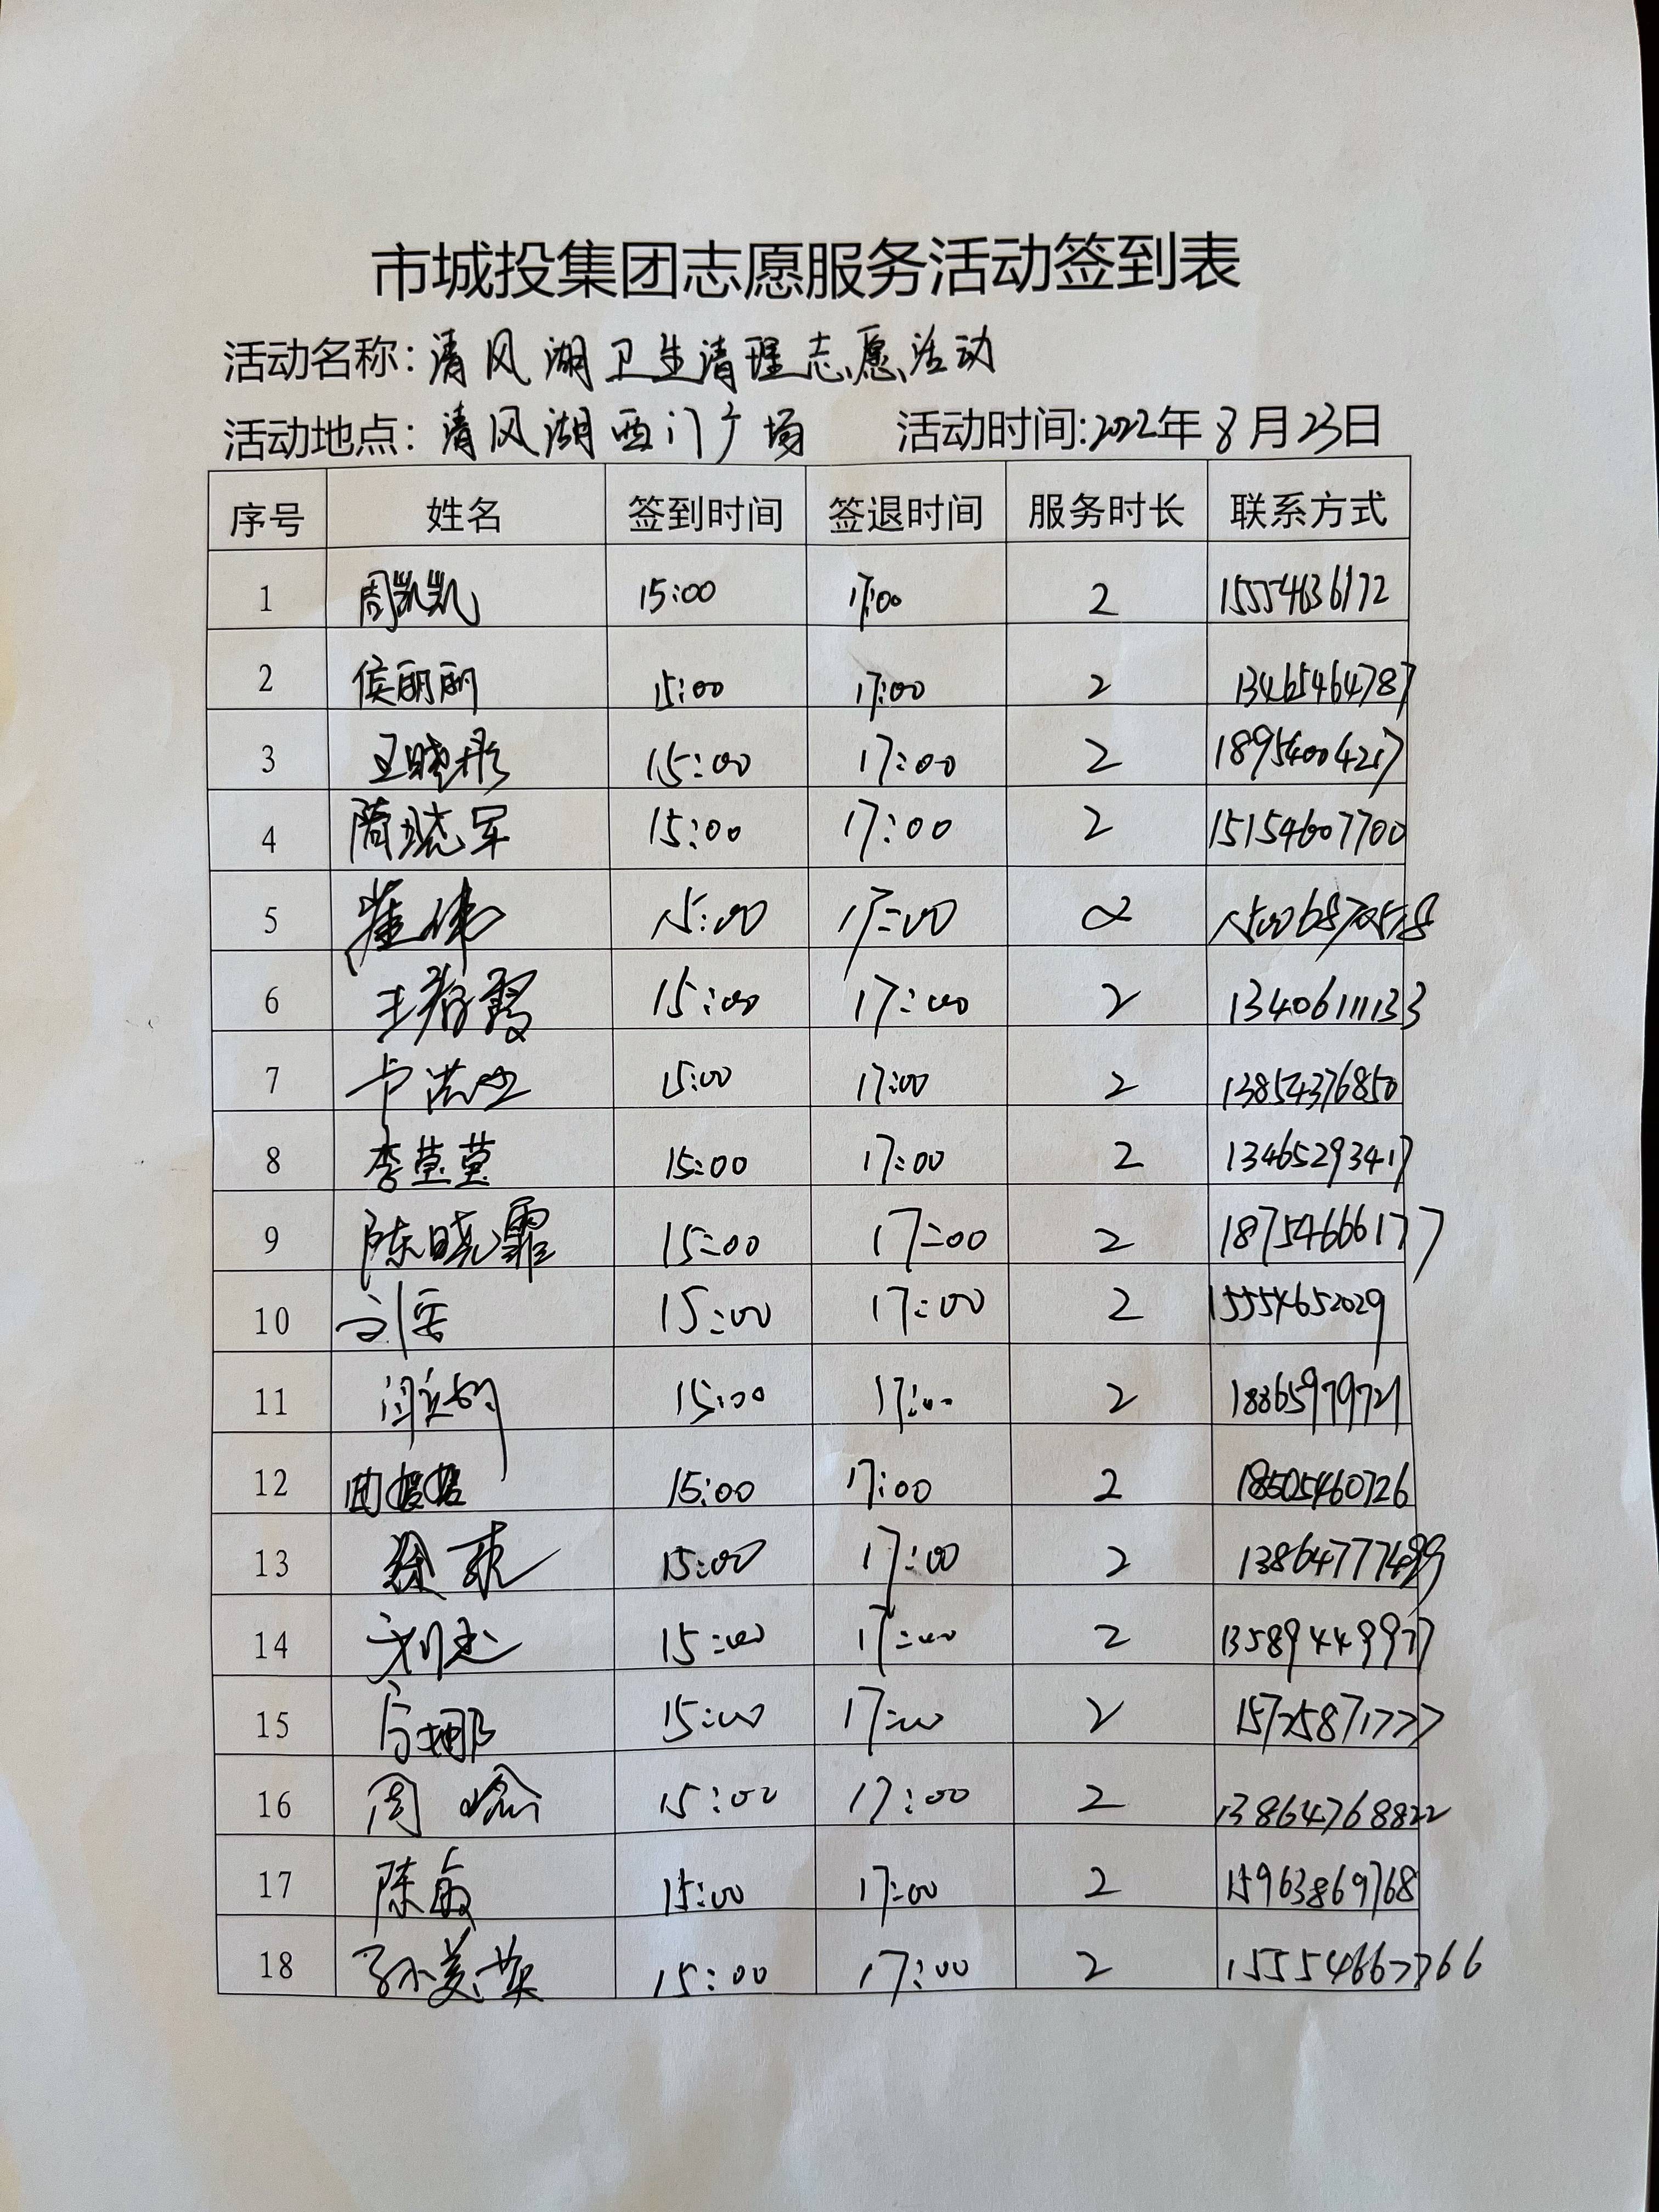 市城投集团志愿服务活动签到表
活动名称:清风湖卫生清理志愿活动
活动地点:清风湖西门广场 活动时间:2022年8月23日
序号 姓名 签到时间 签退时间 服务时长 联系方式
1 周凯凯 15:00 17:00 2 15554636172
2 侯丽丽 15:00 17:00 2 13465464787
3 王晓彤 15:00 17:00 2 18954004217
4 隋晓军 15:00 17:00 2 15154607700
5 崔伟 15:00 17:00 2
6 15:00 17:00 2 13406111133
7 15:00 17:00 2 13854376850
8 李莹莹 15:00 17:00 2 13465293417
9 陈晓霏 15:00 17:00 2 18754666177
10 15:00 17:00 2 15554652029
11 15:00 17:00 2 18865979721
12 15:00 17:00 2 18505460726
13 15:00 17:00 2
14 15:00 17:00 2 13589449977
15 15:00 17:00 2 15725871777
16 周 15:00 17:00 2 13864768822
17 陈敏 15:00 17:00 2 15963869768
18 孙美英 15:00 17:00 2 15554667766